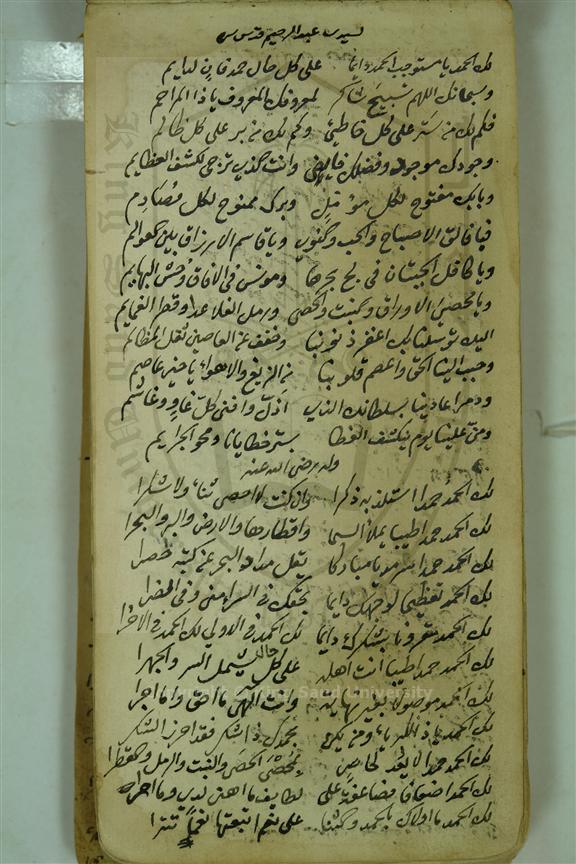 لسيدى عبد الرحيم قدس س
لك الحمد يا مستوجب الحمد دايما على كل حال حمد فان لدايم
وسبحانك اللهم تسبيح شاكر لمعروفك المعروف يا ذا المراحم
فكم لك من ستر على كل خاطئ وكم لك من بر على كل ظالم
وجودك موجود وفضلك فايض وانت الذى ترجى لكشف العظايم
وبابك مفتوح لكل مؤمل وبرك ممنوح لكل مصارم
فيا فالق الاصباح والحب والنوى ويا قاسم الارزاق بين العوالم
ويا كافل الحيتان فى لج بحرها ومونس فى الافاق وحش البهايم
ويا محصى الاوراق والنبت والحصى ورمل الفلا عدا وقطر الغمايم
اليك توسلنا بك اغفر ذنوبنا وخفف عن العاصين ثقل المظالم
وحبب الينا الحق واعصم قلوبنا من الزيغ والاهواء يا خير عاصم
ودمر اعادينا بسلطانك الذى اذل وافنى كل عاد وغاشم
ومن علينا يوم ينكشف الغطا بستر خطايانا ومحو الجرايم
وله رضى الله عنه
لك الحمد حمدا استلذ به ذكرا وان كنت لا احصى ثناء ولا شكرا
لك الحمد حمدا طيبا يملأ السما واقطارها والارض والبر والبحرا
لك الحمد حمدا سرمديا مباركا يقل مداد البحر عن كتبه حصرا
لك الحمد تعظيما لوجهك دايما يخصك فى السرا منى وفى الضرا
لك الحمد مقرونا بشكرك دايما لك الحمد فى الاولى لك الحمد فى الاخرا
لك الحمد حمدا طيبا انت اهله على كل حال يشمل السر والجهرا
لك الحمد موصولا بغير نهاية وانت الهى ما احق وما احرا
لك الحمد يا ذا الكبرياء ومن يكن بحمدك ذا شكر فقد احرز الشكر
لك الحمد حمدا لا يعد لحاصر يحصى الحصى والنبت والرمل والقطرا
لك الحمد اضعافا مضاعفة على لطايف ما
لك الحمد ما اولاك بالحمد والثنا على نعم اتبعتها نعما تترا